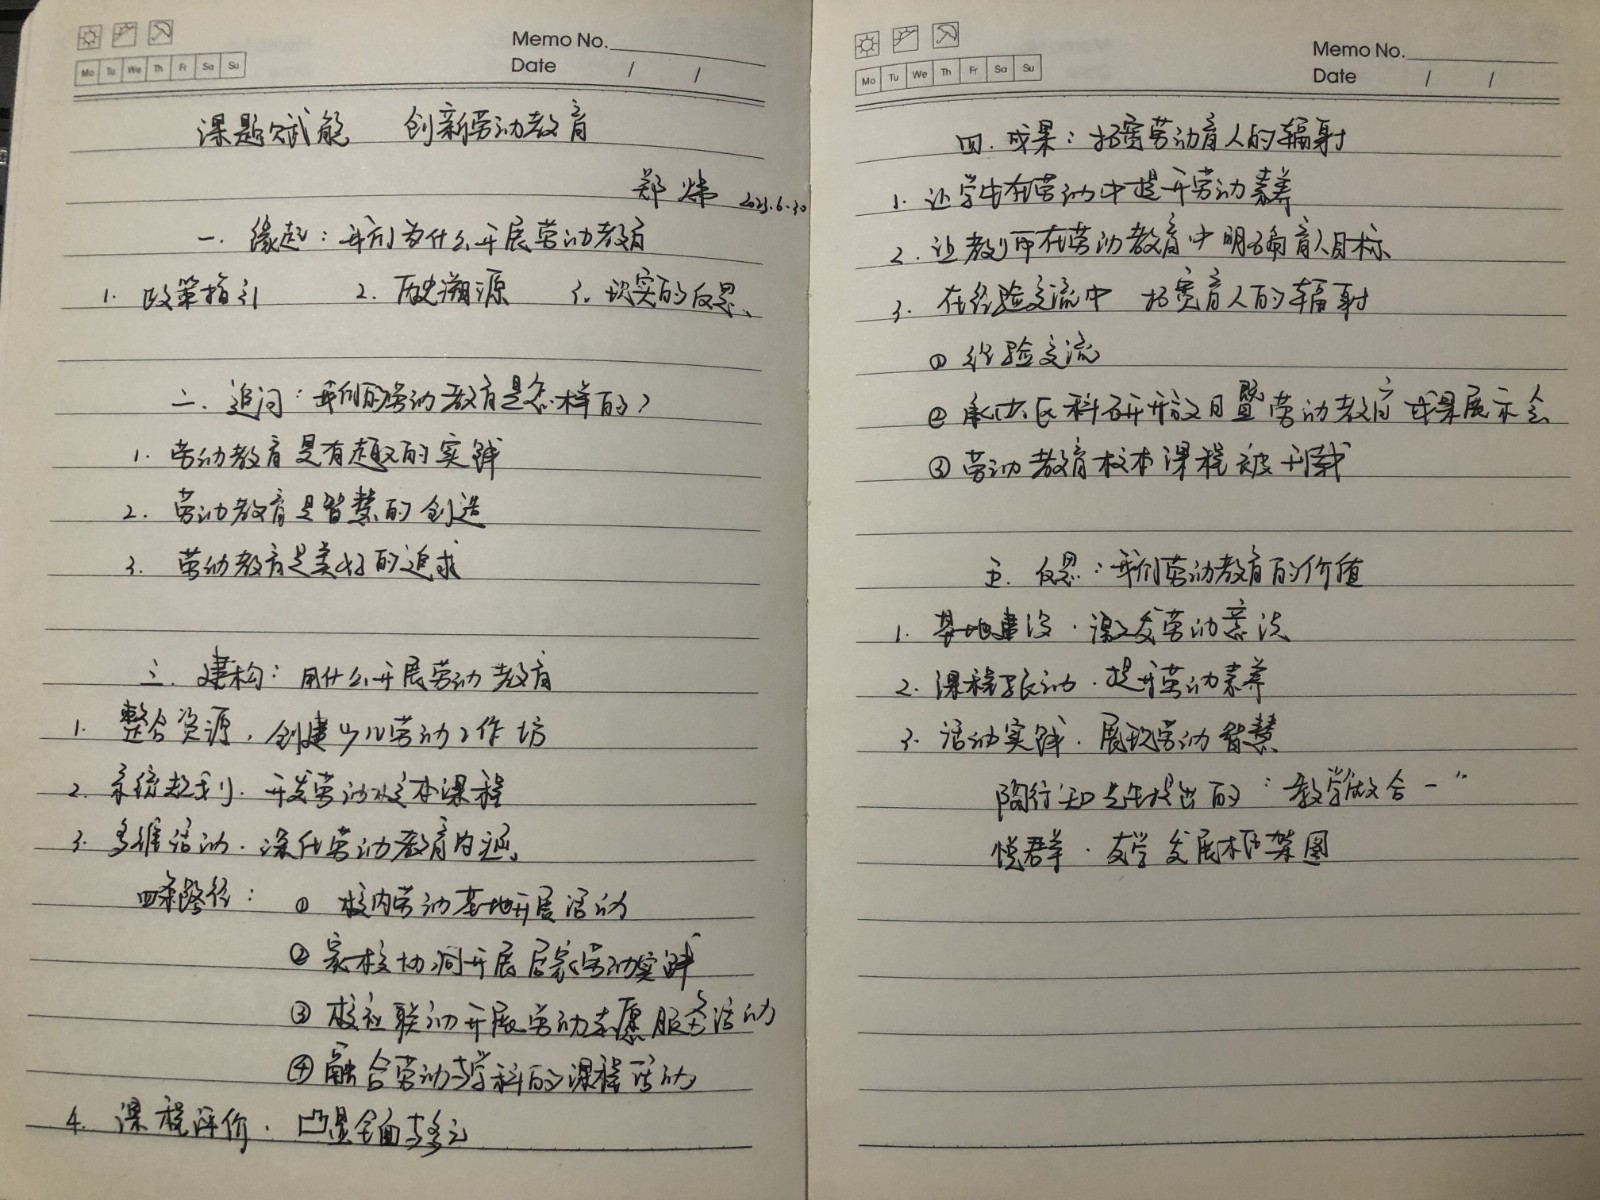 Memo No.
Mo Tu We Th Fr Sa Su
Date / /
课题赋能 创新劳动教育
郑 2023.6.30
一. 缘起：我们为什么开展劳动教育
1. 政策指引 2. 历史溯源 3. 现实的反思、
二. 追问：我们的劳动教育是怎样的？
1. 劳动教育是有趣的实践
2. 劳动教育是智慧的创造
3. 劳动教育是美好的追求
三. 建构：用什么开展劳动教育
1. 整合资源，创建少儿劳动工作坊
2. 系统规划. 开发劳动校本课程
3. 多维活动. 深化劳动教育内涵。
四条路径： ① 校内劳动基地开展活动
② 家校协同开展居家劳动实践
③ 校社联动开展劳动志愿服务活动
④ 融合劳动与学科的课程活动
4. 课程评价. 凸显全面与多元
Memo No.
Mo Tu We Th Fr Sa Su
Date / /
四. 成果：拓宽劳动育人的辐射
1. 让学生在劳动中提升劳动素养
2. 让教师在劳动教育中明确育人目标
3. 在经验交流中 拓宽育人的辐射
① 经验交流
② 承办区科研开放日暨劳动教育成果展示会
③ 劳动教育校本课程被刊载
五. 反思：我们劳动教育的价值
1. 基地建设. 激发劳动意识
2. 课程驱动. 提升劳动素养
3. 活动实践. 展现劳动智慧
陶行知先生提出的“教学做合一”
悦群. 友学发展框架图